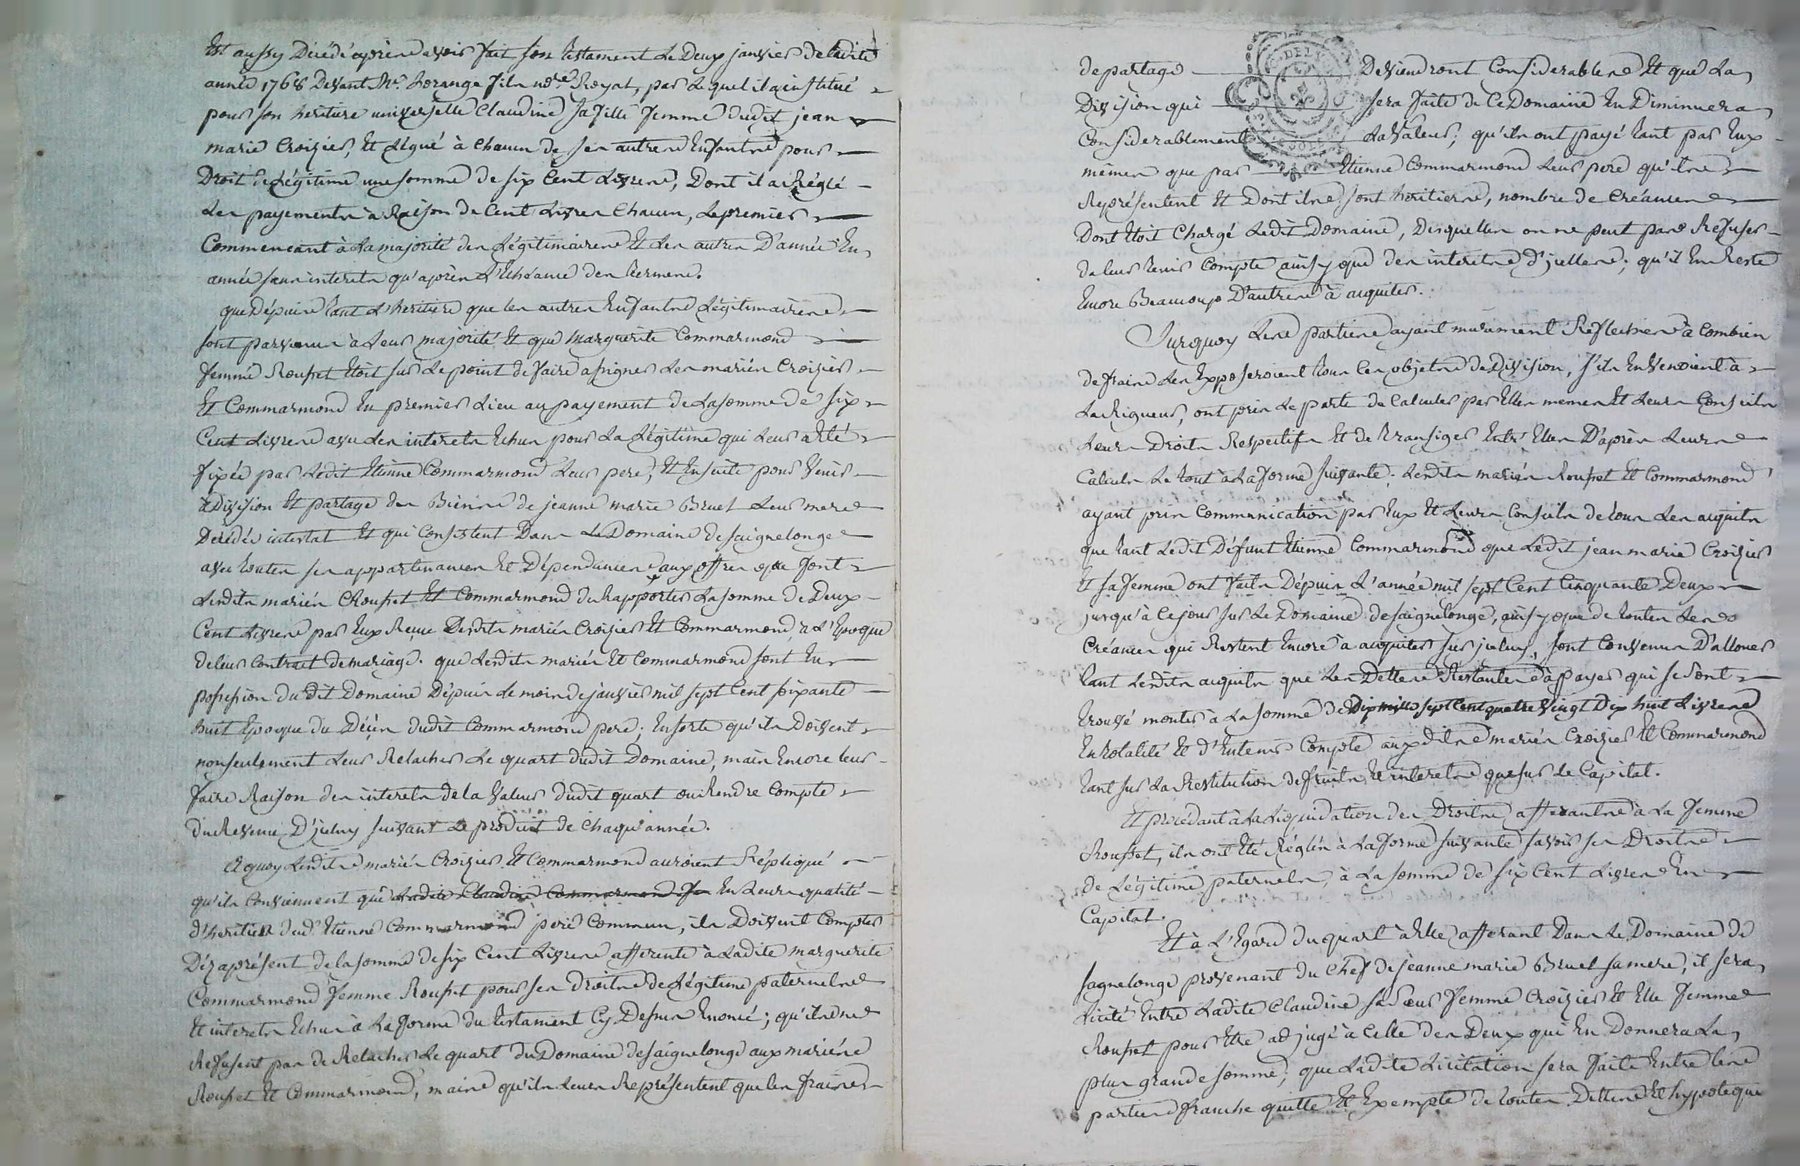 Est aussy Décédé après avoir fait son testament Le Deux janvier de laditte
année 1768 Devant Me. Royat, par Lequel il a institué
pour son heritiere universelle Claudine Sa fille femme dudit jean
marie Croizier, Et Légué à chacun de ses autres Enfants pour
Droit de Légitime une somme de six Cent Livres, Dont il a Réglé
Les payements à Raison de Cent Livres Chacun, Le premier
Commencant à La majorité des Légitimaires Et Les autres D'année En
année sans interets qu'après L'Echéance des termes.
que Depuis tant L'heritiere que les autres Enfants Légitimaires
sont parvenus à Leur majorité Et que Marguerite Commarmond
femme Rouset Etoit sur Le point de faire assigner Les mariés Croizier
Et Commarmond En premier Lieu au payement de La somme de six
Cent Livres avec Les interets Echus pour La Légitime qui Leur a Eté
fixée par Ledit Etienne Commarmond Leur pere, Et Ensuite pour venir
à Division Et partage des Biens de jeanne marie Bruel Leur mere
Décédée intestat Et qui Consistent Dans Le Domaine de saignelonge
avec toutes ses appartenances Et Dépendances aux offres que font
Lesdits mariés Rouset Et Commarmond du Rapporter La somme de Deux
Cent Livres par Eux Reçue Desdits mariés Croizier Et Commarmond, à L'Epoque
de Leur Contrait de mariage. que Lesdits mariés Et Commarmond sont En
possession du dit Domaine Depuis Le mois de janvier mil sept Cent soixante
huit Epoque du Décès dudit Commarmond pere; En sorte qu'ils Doivent
nonseulement Leur Relacher Le quart dudit Domaine, mais Encore leur
faire Raison des interets de la Valeur dudit quart ou Rendre Compte
du Revenu D'jceluy suivant Le produit de chaqu'année.
A quoy Lesdits mariés Croizier Et Commarmond auroient Répliqué
qu'ils Conviennent que Ladite Claudine Commarmond En Leurs qualité
d'heritier dud. Etienne Commarmond pere Commun, ils Doivent Compter
Dèz aprésent de la somme de six Cent Livres afférente à Ladite marguerite
Commarmond femme Rouset pour ses Droits de Légitime paternels
Et interets Echus à La forme du testament Cy Dessus Enoncé; qu'ils ne
Refusent pas de Relacher Le quart Du Domaine de saignelonge aux mariés
Rouset Et Commarmond, mais qu'ils Leurs Représentent que les frais
de partage Deviendront Considerables Et que La
Division qui sera faite de Ce Domaine En Diminuera
Considerablement La Valeur; qu'ils ont payé tant par Eux
mêmes que par Etienne Commarmond Leur pere qu'ils
Représentent Et Dont ils sont heritiers, nombre de Créances
Dont Etoit Chargé Ledit Domaine, Desquelles on ne peut pas Refuser
de leur tenir Compte ainsy que des interets d'jcelles; qu'il En Reste
Encore Beaucoup D'autres à acquiter.
Surquoy Les parties ayant murement Réflechies à Combien
de frais Les Exposeroient tous Ces objets de Division, s'ils En Venoient à
La Rigueur, ont pris Le parti de Calculer par Elles memes Et Leurs Conseils
Leurs Droits Respectifs Et de transiger Entre Elles D'après Leurs
Calculs Le tout à La forme suivante: Lesdits mariés Rouset Et Commarmond
ayant pris Communication par Eux Et Leurs Conseils de tous Les acquits
que tant Ledit Défunt Etienne Commarmond que Ledit jean marie Croizier
Et sa femme ont faits Depuis L'année mil sept Cent Cinquante Deux
jusqu'à Ce jour sur Le Domaine de saignelonge, ainsy que de toutes Les
Créances qui Restent Encore à acquiter sur jceluy, sont Convenus D'allouer
tant Lesdits acquits que Les Dettes Restantes à payer qui se sont
trouvé monter à La somme de Dix mille sept Cent quatre Vingt Dix huit Livres
En totalité Et d'En tenir Compte auxdits mariés Croizier Et Commarmond
tant sur La Restitution de fruits Et interets que sur Le Capital.
Et procédant à La Liquidation des Droits afférants à La femme
Rouset, ils ont Eté Réglés à La forme suivante savoir ses Droits
de Légitime paternels, à La somme de six Cent Livres En
Capital.
Et à L'Egard du quart à Elle afferant Dans Le Domaine de
sagnelonge provenant du Chef de jeanne marie Bruel sa mere, il sera
Licité Entre Ladite Claudine sa sœur femme Croizier Et Elle femme
Rouset pour Etre adjugé à Celle des Deux qui En Donnera La
plus grande somme; que Ladite Licitation sera faite Entre Les
parties franche quitte Et Exempte de toutes Dettes Et hypoteque